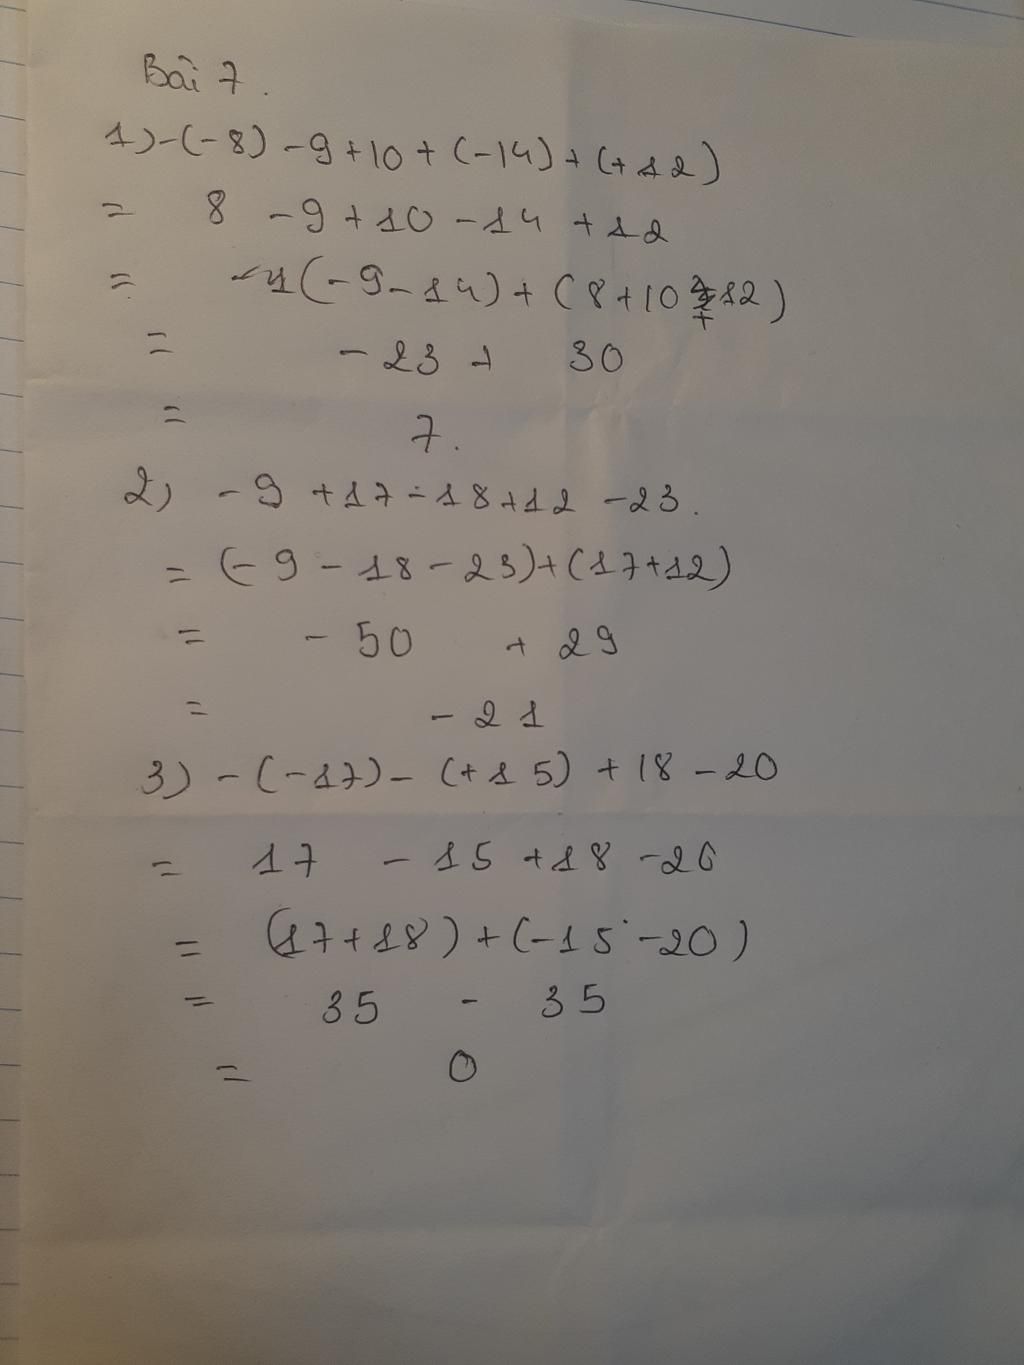 Bài 7.
1) -(-8) -9+10+(-14)+(+12)
= 8 -9+10-14 +12
= (-9-14)+(8+10+12)
= -23 + 30
= 7.
2) -9 +17-18+12 -23.
= (-9-18-23)+(17+12)
= -50 + 29
= -21
3) -(-17)-(+15)+18-20
= 17 -15+18-20
= (17+18)+(-15-20)
= 35 - 35
= 0